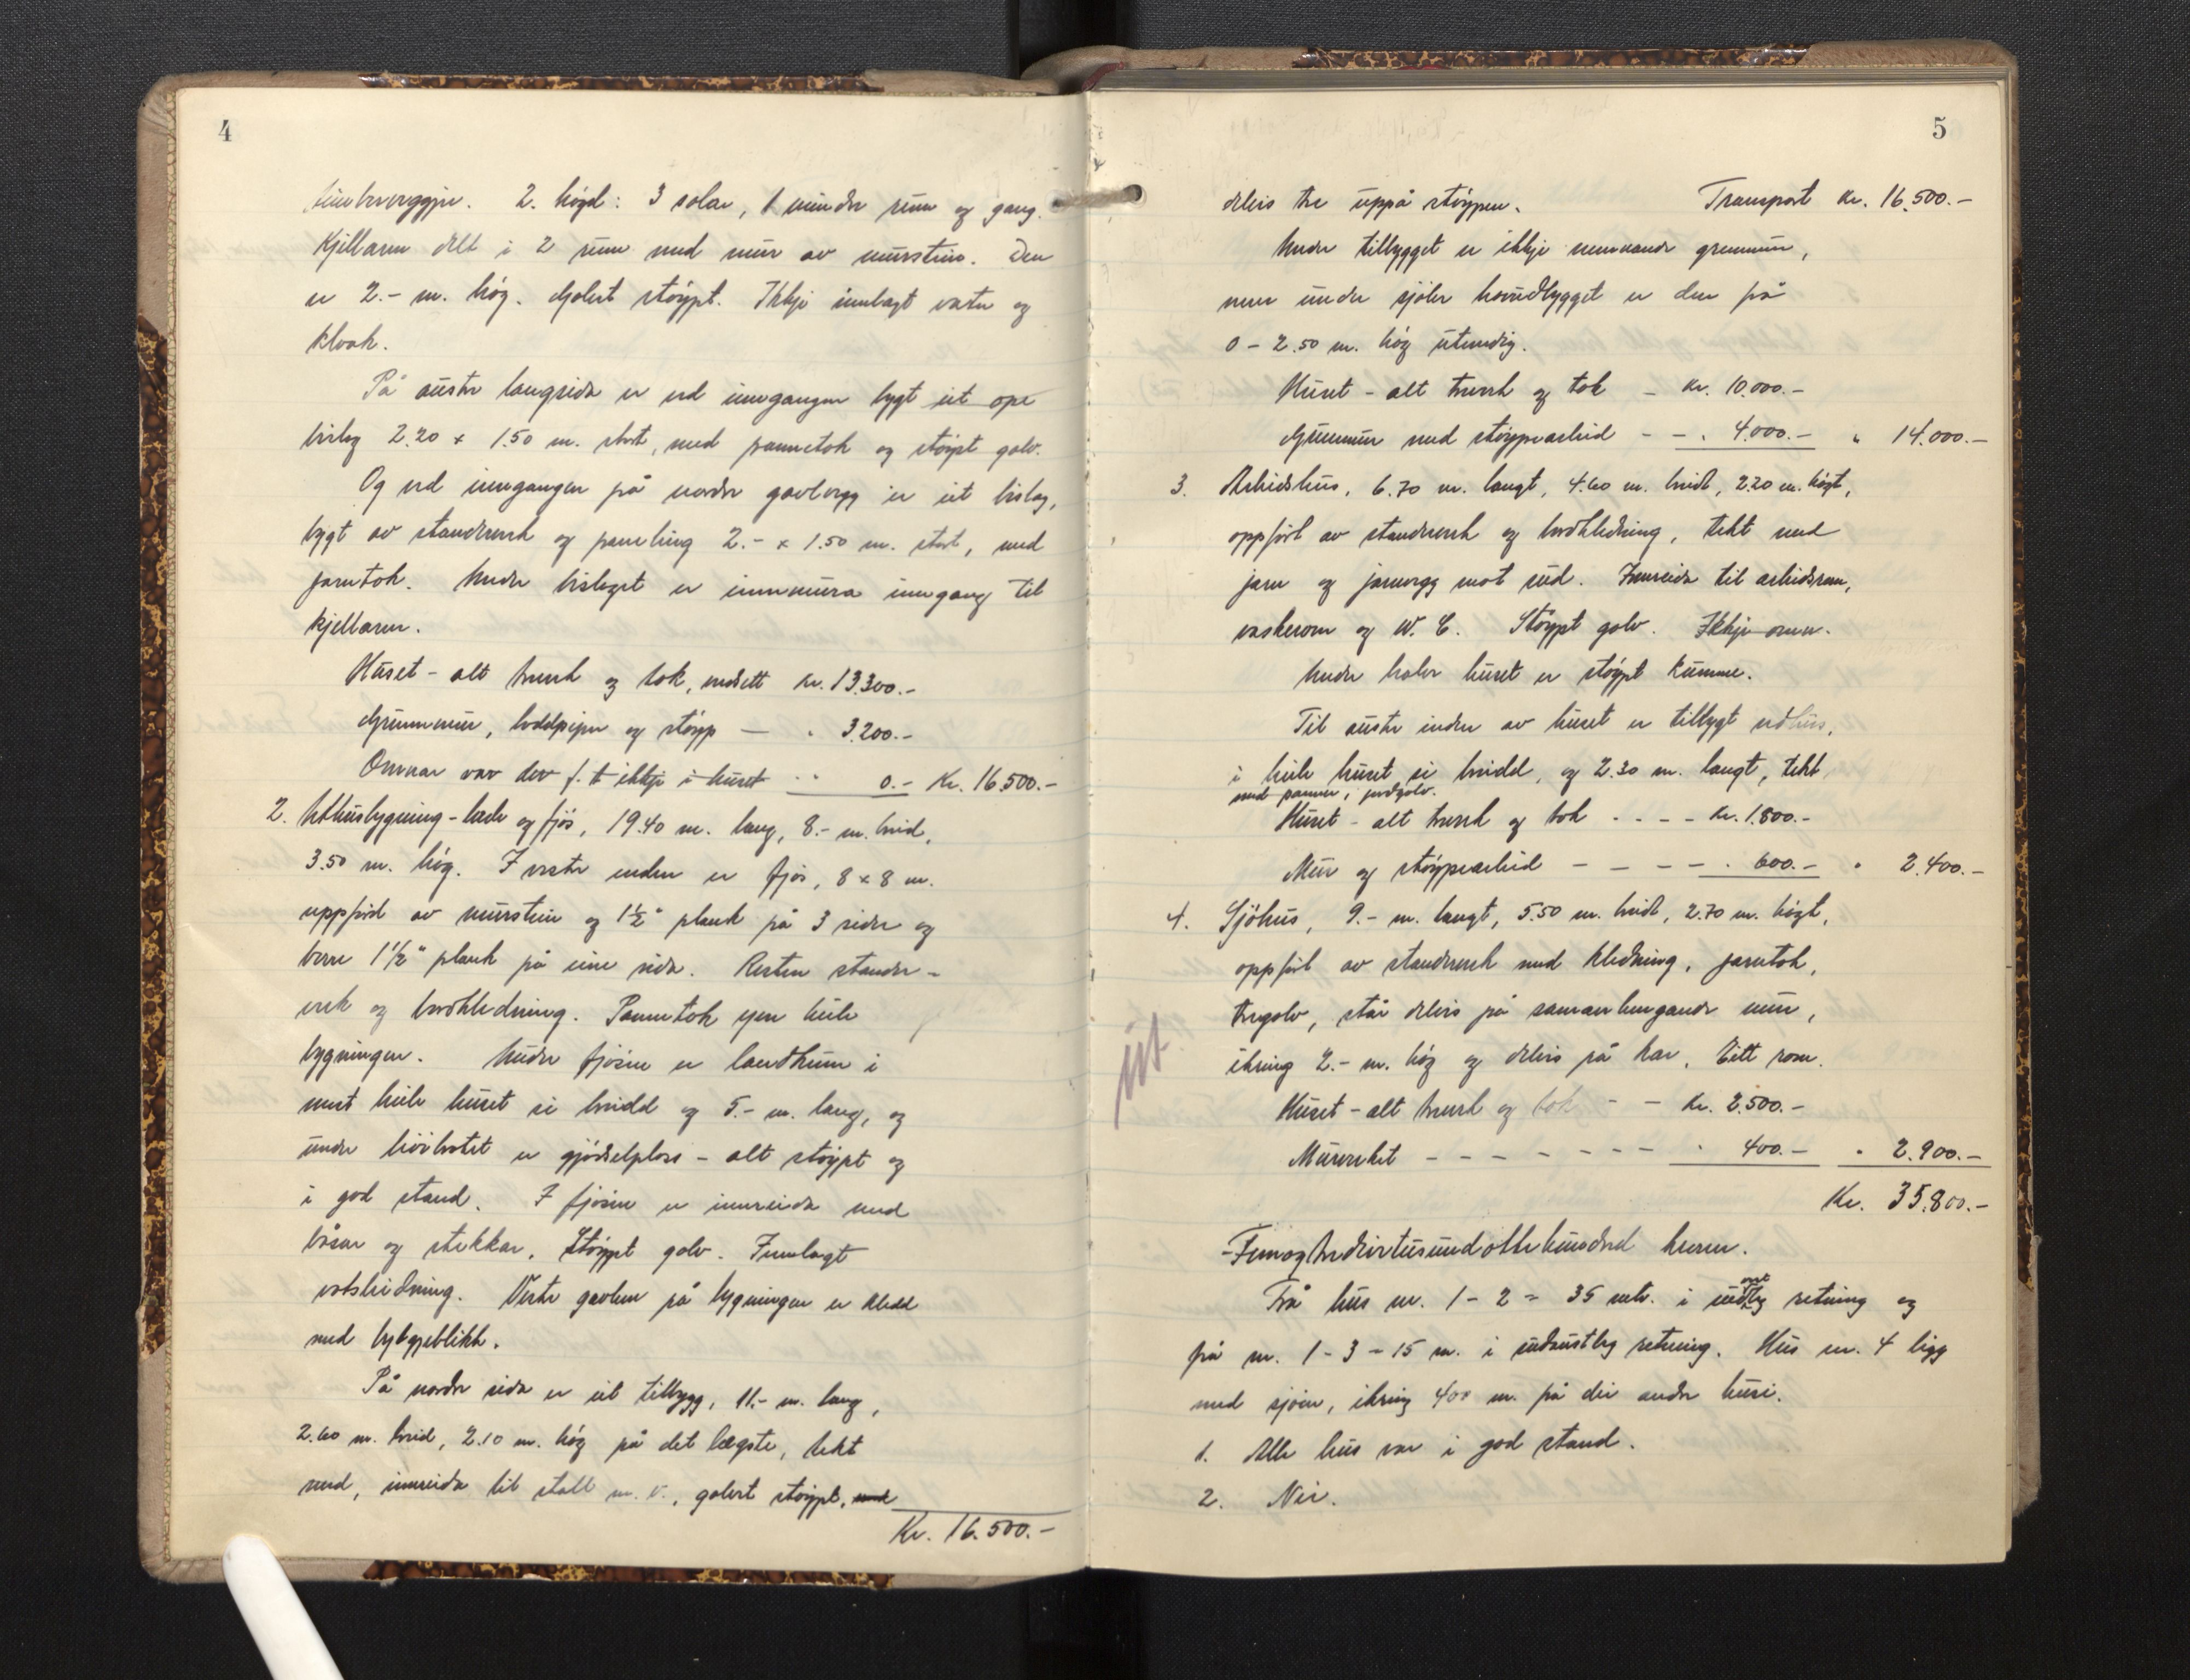 4
timberveggjer. 2. høgd: 3 solar, 1 mindre rum og gang.
Kjellaren delt i 2 rum med mur av murstein. Den
er 2.- m. høg. Golvet støypt. Ikkje innlagt vatn og
kloak.
På austre langsida er ved inngangen bygt eit ope
bislag 2.20 x 1.50 m. stort, med pannetak og støypt golv.
Og ved inngangen på nordre gavlvegg er eit bislag,
bygt av standverk og paneling 2.- x 1.50 m. stort, med
jarntak. Under bislaget er innmura inngang til
kjellaren.
Huset - alt treverk og tak, medsett kr. 13.300.-
Grunnmur, loddpipe og støyp — " 3.200.-
Omnar var der f. t. ikkje i huset " 0.- Kr. 16.500.-
2. Uthusbygning - løde og fjøs, 19.40 m. lang, 8.- m. breid,
3.50 m. høg. I vestre enden er fjøs, 8 x 8 m.
uppførd av murstein og 1½" plank på 3 sider og
berre 1½" plank på eine sida. Resten stender-
verk og bordkledning. Pannetak yver heile
bygningen. Under fjøsen er landkum i
mest heile huset si breidd og 5.- m. lang, og
under höibrotet er gjødselplass - alt støypt og
i god stand. I fjøsen er innreida med
båsar og stekkar. Støypt golv. Innlagt
vatsleidning. Vestre gavlen på bygningen er kledd
med bylgjeblikk.
På nordre sida er eit tilbygg, 11.- m. lang,
2.60 m. breid, 2.10 m. høg på det lægste, tekt
med, innreida til stall m. v., golvet støypt, med
Kr. 16.500.-
5
delvis tre uppå støypen. Transport kr. 16.500.-
Under tilbygget er ikkje nemnande grunnmur,
men under sjølve hovudbygget er den frå
0 - 2.50 m. høg utvendig.
Huset - alt treverk og tak - kr. 10.000.-
Grunnmur med støypearbeid - - " 4.000.- " 14.000.-
3. Arbeidshus, 6.70 m. langt, 4.60 m. breidt, 2.20 m. høgt,
oppført av standverk og bordkledning, tekt med
jarn og jarnvegg mot sud. Innreida til arbeidsrom,
vaskerom og W. C. Støypt golv. Ikkje omn.
Under halve huset er støypt kumme.
Til austre enden av huset er tilbygt vedhus,
i heile huset si breidd, og 2.30 m. langt, tekt
med panner, jordgolv.
Huset - alt treverk og tak - - - - kr. 1.800.-
Mur og støypearbeid - - - - " 600.- " 2.400.-
4. Sjøhus, 9.- m. langt, 5.50 m. breidt, 2.70 m. høgt,
oppført av standverk med kledning, jarntak,
tregolv, står delvis på samanhengande mur,
ikring 2.- m. høg og delvis på kar. Eitt rom.
ut
Huset - alt treverk og tak - - kr. 2.500.-
Murverket - - - - - - - " 400.- " 2.900.-
Kr. 35.800.-
- Femogtredivetusundåttehundred kroner.
Frå hus nr. 1 - 2 = 35 mtr. i vestleg retning og
frå nr. 1 - 3 = 15 m. i sudaustleg retning. Hus nr. 4 ligg
med sjøen, ikring 400 m. frå dei andre husi.
1. Alle hus var i god stand.
2. Nei.